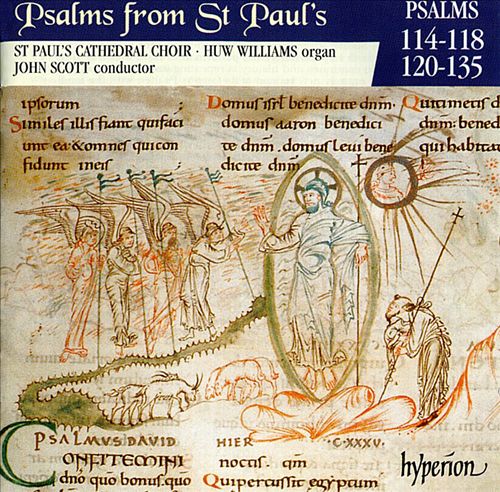 Psalms from St Paul's
ST PAUL'S CATHEDRAL CHOIR · HUW WILLIAMS organ
JOHN SCOTT conductor
PSALMS
114-118
120-135
ipsorum
Similes illis fiant qui faci
unt ea & omnes qui con
fidunt in eis
Domus isrl benedicite dnm.
domus aaron benedici
te dnm. domus leui bene
dicite dnm
Qui timetis d
dnm: bened
qui habitat
PSALMUS DAVID
CONFITEMINI
dno quo bonus. quo
HIER
C·XXXV·
noctis. qm
Qui percussit egyptum
hyperion